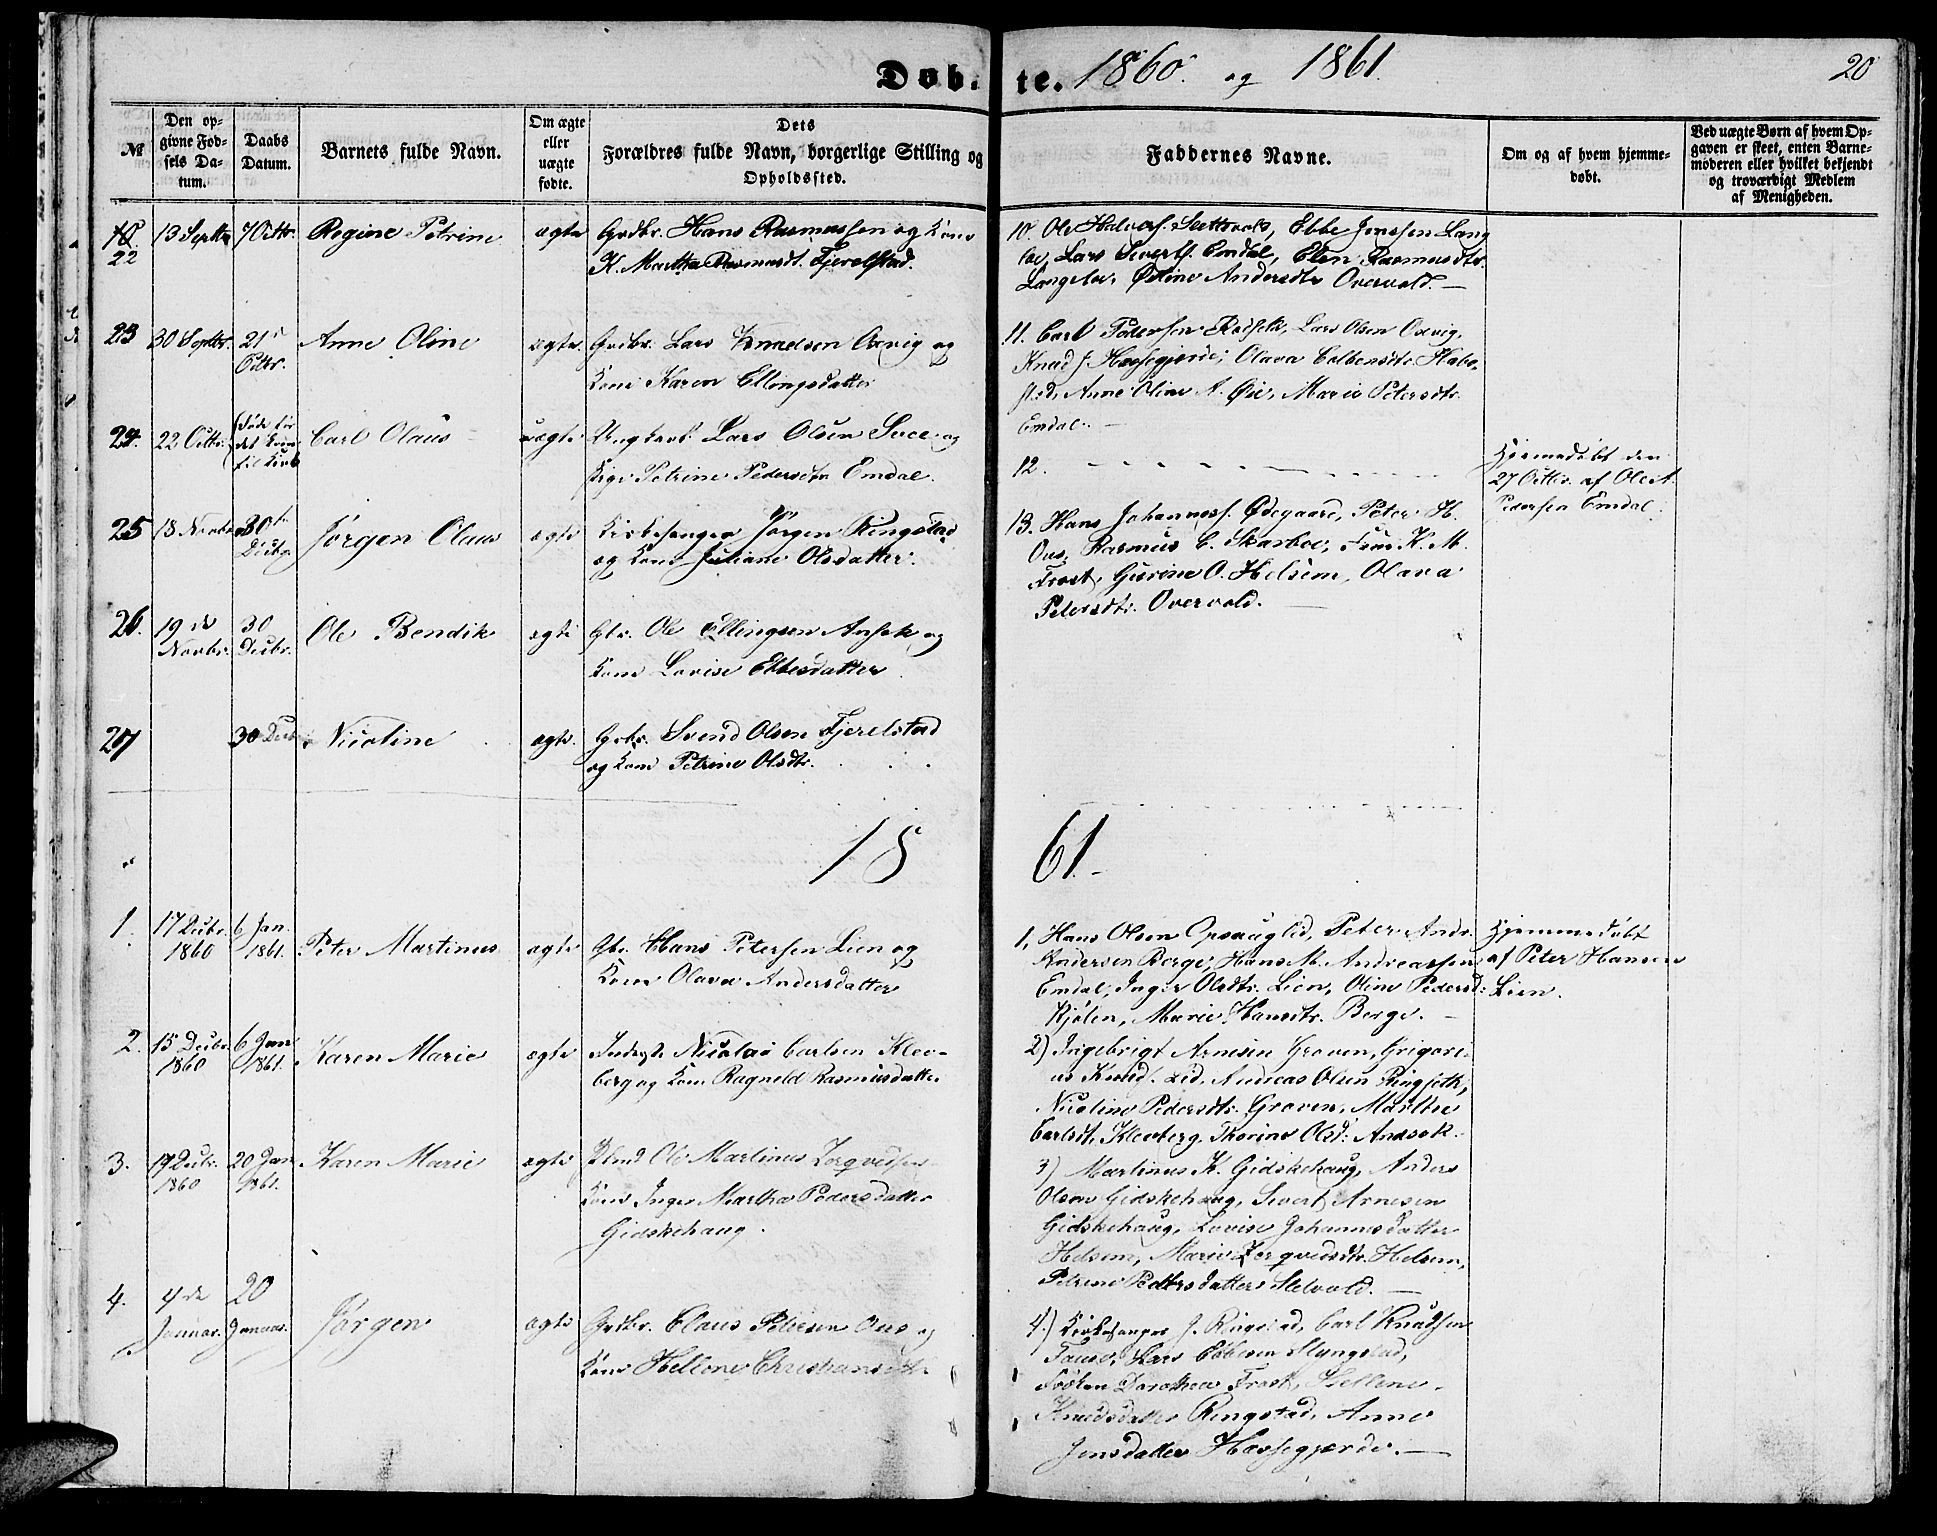 Døbte. 1860. og 1861. 20
№
Den op-
givne Fød-
sels Da-
tum.
Daabs
Datum.
Barnets fulde Navn.
Om ægte
eller
uægte
fødte.
Dets
Forældres fulde Navn, borgerlige Stilling og
Opholdssted.
Faddernes Navne.
Om og af hvem hjemme-
døbt.
Ved uægte Børn af hvem Op-
gaven er skeet, enten Barne-
moderen eller hvilket bekjendt
og troværdigt Medlem
af Menigheden.
22
13 Septbr
7 Octbr.
Regine Petrine
ægte
Grdbr. Hans Rasmussen og Kone
K. Martha Rasmusdt. Fjerelstad.
10. Ole Halvors. Ebbe Jenssen Lang
loe, Lars Siverts. Emdal, Elen Rasmusdtr.
Langeloe, Andersdtr Overvold.
23
30 Septbr.
21
Octbr.
Anne Oline
ægte.
Grdbr. Lars Knudsen Oxvig og
Kone Karen Ellingsdatter
11. Carl Pedersen Lars Olsen Oxvig,
Knud J. Hassegjerde, Olava
Anne Oline A. Øie, Marie Petersdtr.
Emdal.
24.
22 Octbr.
(døde før
det kom
til Kirk
Carl Olaus
uægte
Ungkarl Lars Olsen og
Pige Petrine Pedersdtr Emdal.
12.
Hjemmedøbt den
27 Octbr. af Ole A.
Pedersen Emdal.
25
18 Novbr
30te
Decbr.
Jørgen Olaus
ægte
Kirkesanger Jørgen Ringstad
og Kone Juliane Olsdatter.
13. Hans Johanness. Ødegaard, Peter H.
Ous, Rasmus C. Skarboe, Frue K. M.
Frost, Gurine O. Helsem, Olava
Petersdtr. Overvold.
26.
19 de
Novbr.
30
Decbr.
Ole Bendik
ægte
Gbr. Ole Ellingsen Ansok og
Kone Lovise Ebbesdatter
27
30 Decbr
Nicoline
ægte.
Grbr. Svend Olsen Fjerelstad
og Kone Petrine Olsdtr.
18 61.
1.
17 Decbr.
1860
6 Jan.
1861.
Peter Martinus
ægte
Gbr. Hans Petersen Lien og
Kone Olava Andersdatter
1, Hans Olsen Opsauglid, Peter Andr.
Andersen Berge, Hans M. Andreassen
Emdal, Inger Olsdtr. Lien, Oline Pedersd:
Kjølen, Marie Hansdtr. Berge.
Hjemmedøbt
af Peter Hansen
Lien.
2.
15 Decbr.
1860
6 Jan
1861.
Karen Marie
ægte
Inderst Nicolai Carlsen Klev-
berg og Kone Ragneld Rasmusdatter
2) Ingebrigt Arnesen Groven, Grigori-
us Knud. Lid, Andreas Olsen Ringseth,
Nicoline Pedersdtr. Groven, Marthe
Carlsdt. Klevberg, Thorine Olsd: Andsok.
3.
17 Decbr.
1860
20 Jan
1861.
Karen Marie
ægte
Ole Martinus
Kone Inger Martha Pedersdatter
Gidskehaug.
3) Martinus K. Gidskehaug, Anders
Olsen Gidskehaug, Sivert Arnesen
Gidskehaug, Lovise Johannesdatter
Helsem, Marie Helsem,
Petrine Pedersdatter
4.
4 de
Januar.
20
Januar.
Jørgen
ægte
Grdbr. Claus Petersen Ous og
Kone Hellene Christiansdtr.
4.) Kirkesanger J. Ringstad, Carl Knudsen
Lars Ebbesen Slyngstad,
Frøken Dorothea Frost,
Knudsdatter Ringstad, Anne
Jensdatter Hassegjerde.